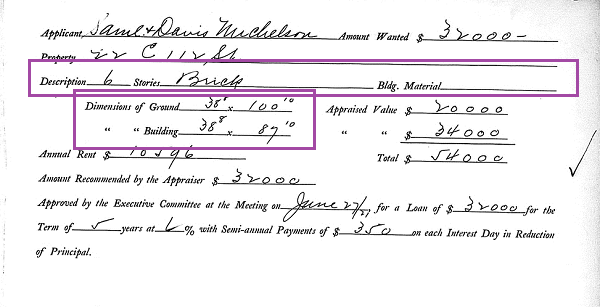 Applicant, Saml & Davis Michelson Amount Wanted $ 32000-
Property 22 E 112 St
Description 6 Stories Brick Bldg. Material
Dimensions of Ground 38⁸ x 100¹⁰ Appraised Value $ 20000
" " Building 38⁸ x 87¹⁰ " " $ 34000
Annual Rent $ 10596 Total $ 54000
Amount Recommended by the Appraiser $ 32000
Approved by the Executive Committee at the Meeting on June 27/27 for a Loan of $ 32000 for the
Term of 5 years at 6 % with Semi-annual Payments of $ 350 on each Interest Day in Reduction
of Principal.